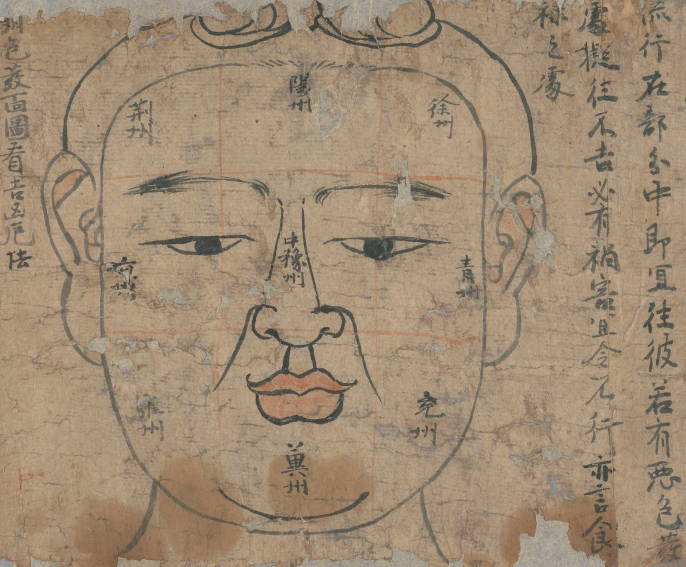 流行在部分中即宜往彼若有惡色發
處擬往不吉必有禍害且令不行亦言食
祿之處
徐州
青州
兗州
陽州
中豫州
冀州
荊州
雍州
州色發面圖看吉凶厄法